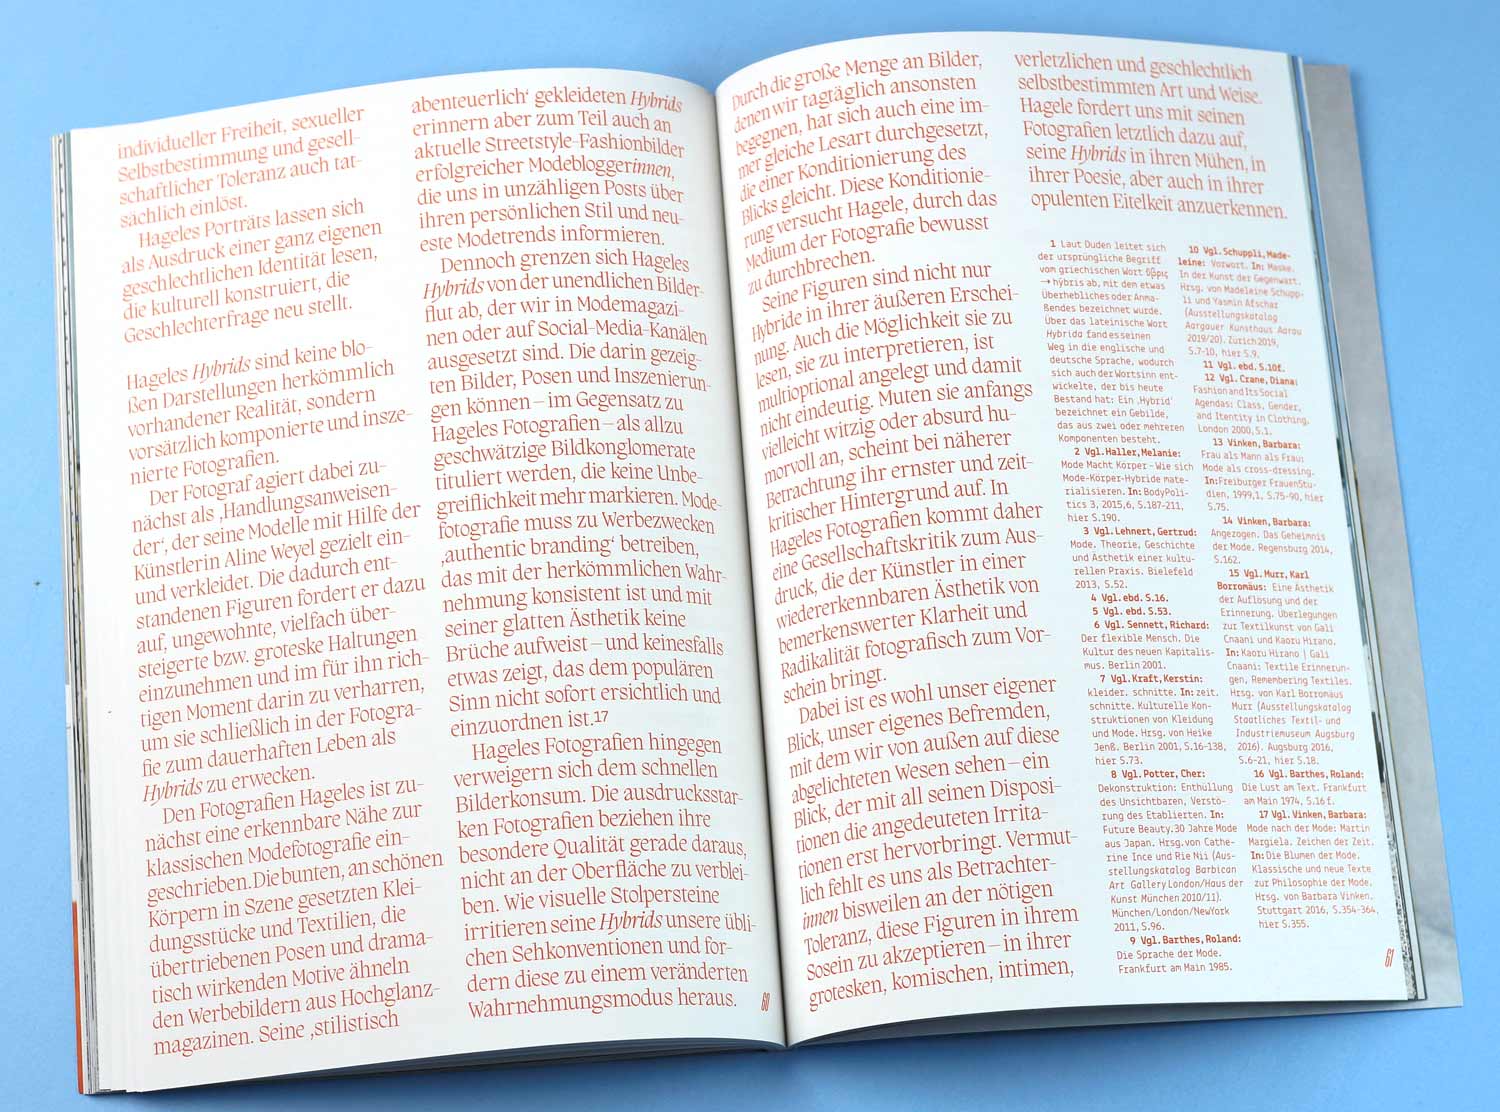 individueller Freiheit, sexueller
Selbstbestimmung und gesell-
schaftlicher Toleranz auch tat-
sächlich einlöst.
Hageles Porträts lassen sich
als Ausdruck einer ganz eigenen
geschlechtlichen Identität lesen,
die kulturell konstruiert, die
Geschlechterfrage neu stellt.
Hageles Hybrids sind keine blo-
ßen Darstellungen herkömmlich
vorhandener Realität, sondern
vorsätzlich komponierte und insze-
nierte Fotografien.
Der Fotograf agiert dabei zu-
nächst als ‚Handlungsanweisen-
der‘, der seine Modelle mit Hilfe der
Künstlerin Aline Weyel gezielt ein-
und verkleidet. Die dadurch ent-
standenen Figuren fordert er dazu
auf, ungewohnte, vielfach über-
steigerte bzw. groteske Haltungen
einzunehmen und im für ihn rich-
tigen Moment darin zu verharren,
um sie schließlich in der Fotogra-
fie zum dauerhaften Leben als
Hybrids zu erwecken.
Den Fotografien Hageles ist zu-
nächst eine erkennbare Nähe zur
klassischen Modefotografie ein-
geschrieben. Die bunten, an schönen
Körpern in Szene gesetzten Klei-
dungsstücke und Textilien, die
übertriebenen Posen und drama-
tisch wirkenden Motive ähneln
den Werbebildern aus Hochglanz-
magazinen. Seine ‚stilistisch
abenteuerlich‘ gekleideten Hybrids
erinnern aber zum Teil auch an
aktuelle Streetstyle-Fashionbilder
erfolgreicher Modebloggerinnen,
die uns in unzähligen Posts über
ihren persönlichen Stil und neu-
este Modetrends informieren.
Dennoch grenzen sich Hageles
Hybrids von der unendlichen Bilder-
flut ab, der wir in Modemagazi-
nen oder auf Social-Media-Kanälen
ausgesetzt sind. Die darin gezeig-
ten Bilder, Posen und Inszenierun-
gen können – im Gegensatz zu
Hageles Fotografien – als allzu
geschwätzige Bildkonglomerate
tituliert werden, die keine Unbe-
greiflichkeit mehr markieren. Mode-
fotografie muss zu Werbezwecken
‚authentic branding‘ betreiben,
das mit der herkömmlichen Wahr-
nehmung konsistent ist und mit
seiner glatten Ästhetik keine
Brüche aufweist – und keinesfalls
etwas zeigt, das dem populären
Sinn nicht sofort ersichtlich und
einzuordnen ist.17
Hageles Fotografien hingegen
verweigern sich dem schnellen
Bilderkonsum. Die ausdrucksstar-
ken Fotografien beziehen ihre
besondere Qualität gerade daraus,
nicht an der Oberfläche zu verblei-
ben. Wie visuelle Stolpersteine
irritieren seine Hybrids unsere übli-
chen Sehkonventionen und for-
dern diese zu einem veränderten
Wahrnehmungsmodus heraus.
60
Durch die große Menge an Bilder,
denen wir tagtäglich ansonsten
begegnen, hat sich auch eine im-
mer gleiche Lesart durchgesetzt,
die einer Konditionierung des
Blicks gleicht. Diese Konditionie-
rung versucht Hagele, durch das
Medium der Fotografie bewusst
zu durchbrechen.
Seine Figuren sind nicht nur
Hybride in ihrer äußeren Erschei-
nung. Auch die Möglichkeit sie zu
lesen, sie zu interpretieren, ist
multioptional angelegt und damit
nicht eindeutig. Muten sie anfangs
vielleicht witzig oder absurd hu-
morvoll an, scheint bei näherer
Betrachtung ihr ernster und zeit-
kritischer Hintergrund auf. In
Hageles Fotografien kommt daher
eine Gesellschaftskritik zum Aus-
druck, die der Künstler in einer
wiedererkennbaren Ästhetik von
bemerkenswerter Klarheit und
Radikalität fotografisch zum Vor-
schein bringt.
Dabei ist es wohl unser eigener
Blick, unser eigenes Befremden,
mit dem wir von außen auf diese
abgelichteten Wesen sehen – ein
Blick, der mit all seinen Disposi-
tionen die angedeuteten Irrita-
tionen erst hervorbringt. Vermut-
lich fehlt es uns als Betrachter-
innen bisweilen an der nötigen
Toleranz, diese Figuren in ihrem
Sosein zu akzeptieren – in ihrer
grotesken, komischen, intimen,
verletzlichen und geschlechtlich
selbstbestimmten Art und Weise.
Hagele fordert uns mit seinen
Fotografien letztlich dazu auf,
seine Hybrids in ihren Mühen, in
ihrer Poesie, aber auch in ihrer
opulenten Eitelkeit anzuerkennen.
1 Laut Duden leitet sich
der ursprüngliche Begriff
vom griechischen Wort ὕβρις
→ hýbris ab, mit dem etwas
Überhebliches oder Anma-
ßendes bezeichnet wurde.
Über das lateinische Wort
Hybrida fand es seinen
Weg in die englische und
deutsche Sprache, wodurch
sich auch der Wortsinn ent-
wickelte, der bis heute
Bestand hat: Ein ‚Hybrid‘
bezeichnet ein Gebilde,
das aus zwei oder mehreren
Komponenten besteht.
2 Vgl. Haller, Melanie:
Mode Macht Körper - Wie sich
Mode-Körper-Hybride mate-
rialisieren. In: BodyPoli-
tics 3, 2015,6, S.187-211,
hier S.190.
3 Vgl. Lehnert, Gertrud:
Mode. Theorie, Geschichte
und Ästhetik einer kultu-
rellen Praxis. Bielefeld
2013, S.52.
4 Vgl. ebd. S.16.
5 Vgl. ebd. S.53.
6 Vgl. Sennett, Richard:
Der flexible Mensch. Die
Kultur des neuen Kapitalis-
mus. Berlin 2001.
7 Vgl. Kraft, Kerstin:
kleider. schnitte. In: zeit.
schnitte. Kulturelle Kon-
struktionen von Kleidung
und Mode. Hrsg. von Heike
Jenß. Berlin 2001, S.16-138,
hier S.73.
8 Vgl. Potter, Cher:
Dekonstruktion: Enthüllung
des Unsichtbaren, Versto-
rung des Etablierten. In:
Future Beauty.30 Jahre Mode
aus Japan. Hrsg.von Cathe-
rine Ince und Rie Nii (Aus-
stellungskatalog Barbican
Art Gallery London/Haus der
Kunst München 2010/11).
München/London/NewYork
2011, S.96.
9 Vgl. Barthes, Roland:
Die Sprache der Mode.
Frankfurt am Main 1985.
10 Vgl. Schuppli, Made-
leine: Vorwort. In: Maske.
In der Kunst der Gegenwart.
Hrsg. von Madeleine Schupp-
li und Yasmin Afschar
(Ausstellungskatalog
Aargauer Kunsthaus Aarau
2019/20). Zürich 2019,
S.7-10, hier S.9.
11 Vgl. ebd. S.10f.
12 Vgl. Crane, Diana:
Fashion and Its Social
Agendas: Class, Gender,
and Itentity in Clothing.
London 2000, S.1.
13 Vinken, Barbara:
Frau als Mann als Frau:
Mode als cross-dressing.
In:Freiburger FrauenStu-
dien, 1999,1, S.75-90, hier
S.75.
14 Vinken, Barbara:
Angezogen. Das Geheimnis
der Mode. Regensburg 2014,
S.162.
15 Vgl. Murr, Karl
Borromäus: Eine Ästhetik
der Auflösung und der
Erinnerung. Überlegungen
zur Textilkunst von Gali
Cnaani und Kaozu Hirano.
In: Kaoru Hirano | Gali
Cnaani: Textile Erinnerun-
gen, Remembering Textiles.
Hrsg. von Karl Borromäus
Murr (Ausstellungskatalog
Staatliches Textil- und
Industriemuseum Augsburg
2016). Augsburg 2016,
S.6-21, hier S.18.
16 Vgl. Barthes, Roland:
Die Lust am Text. Frankfurt
am Main 1974, S.16 f.
17 Vgl. Vinken, Barbara:
Mode nach der Mode: Martin
Margiela. Zeichen der Zeit.
In: Die Blumen der Mode.
Klassische und neue Texte
zur Philosophie der Mode.
Hrsg. von Barbara Vinken.
Stuttgart 2016, S.354-364,
hier S.355.
61